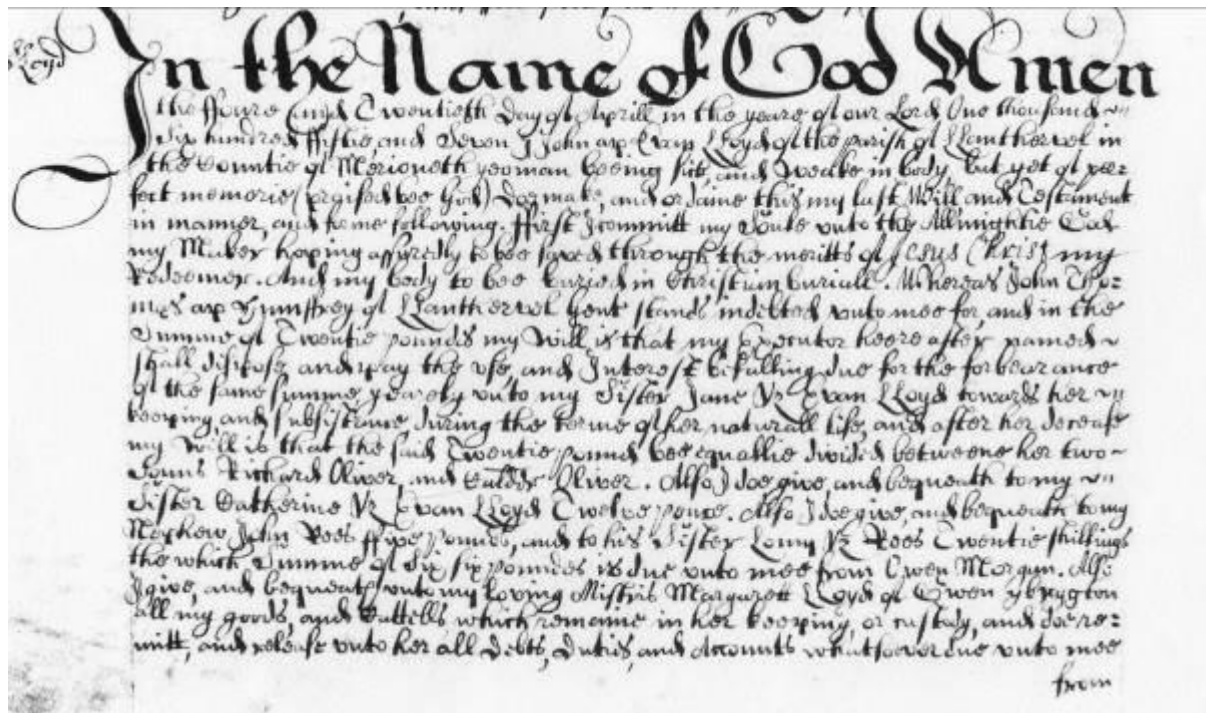 Lloyd
In the Name of God Amen
the ffoure and Twentieth day of Aprill in the yeare of our Lord One thousand
Six hundred ffiftie and Seven I John ap Evan Lloyd of the parish of LLanthervel in
the Countie of Merioneth yeoman beeing sick, and weake in body, but yet of per-
fect memorie (praised bee God) doe make, and ordaine this my last Will and Testament
in manner, and forme following. ffirst I committ my Soule unto the Allmightie God
my Maker hoping assuredly to bee saved through the meritts of Jesus Christ my
Redeemer. And my body to bee buried in Christian buriall. Whereas John Tho-
mas ap Humffrey of LLanthervel gent stands indebted unto mee for, and in the
Summe of Twentie pounds my Will is that my Executor heere after named
shall dispose, and pay the use, and Interest befalling due for the forbearance
of the same summe yearely unto my Sister Jane Vz Evan LLoyd towards her
keeping, and subsistance during the terme of her naturall life, and after her decease
my Will is that the said Twentie pounds bee equallie divided betweene her two
Sonns Richard Oliver and Oliver. Also I doe give, and bequeath to my
Sister Catherine Vz Evan LLoyd Twelve pence. Also I doe give, and bequeath to my
Nephew John Rees ffive pounds, and to his Sister Lowry Vz Rees Twentie shillings
the which Summe of Six poundes is due unto mee from Owen Morgan. Also
I give, and bequeath unto my loving Mistris Margarett LLoyd of
all my goods, and Cattells which remaine in her keeping, or custody, and doe re-
mitt, and release unto her all Debts, Duties, and Accounts whatsoever due unto mee
from